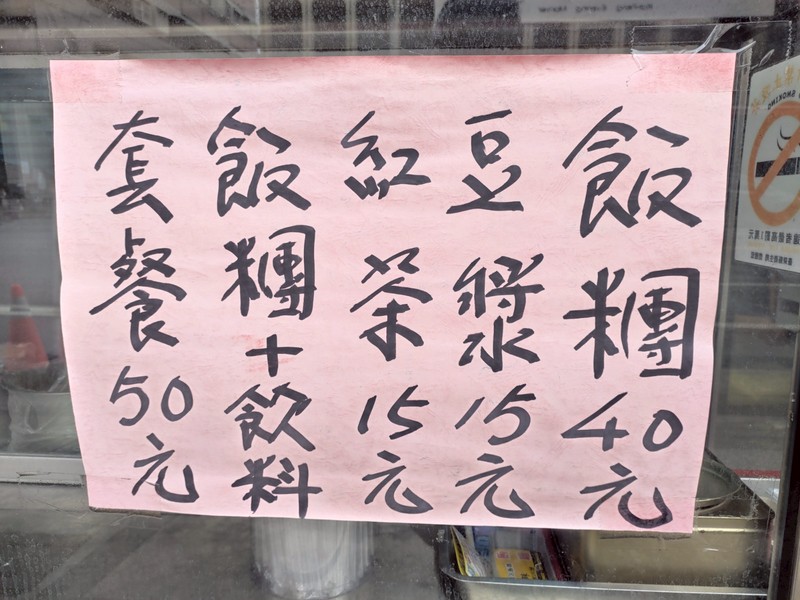 飯糰40元
豆漿15元
紅茶15元
飯糰+飲料
套餐50元
SMOKING